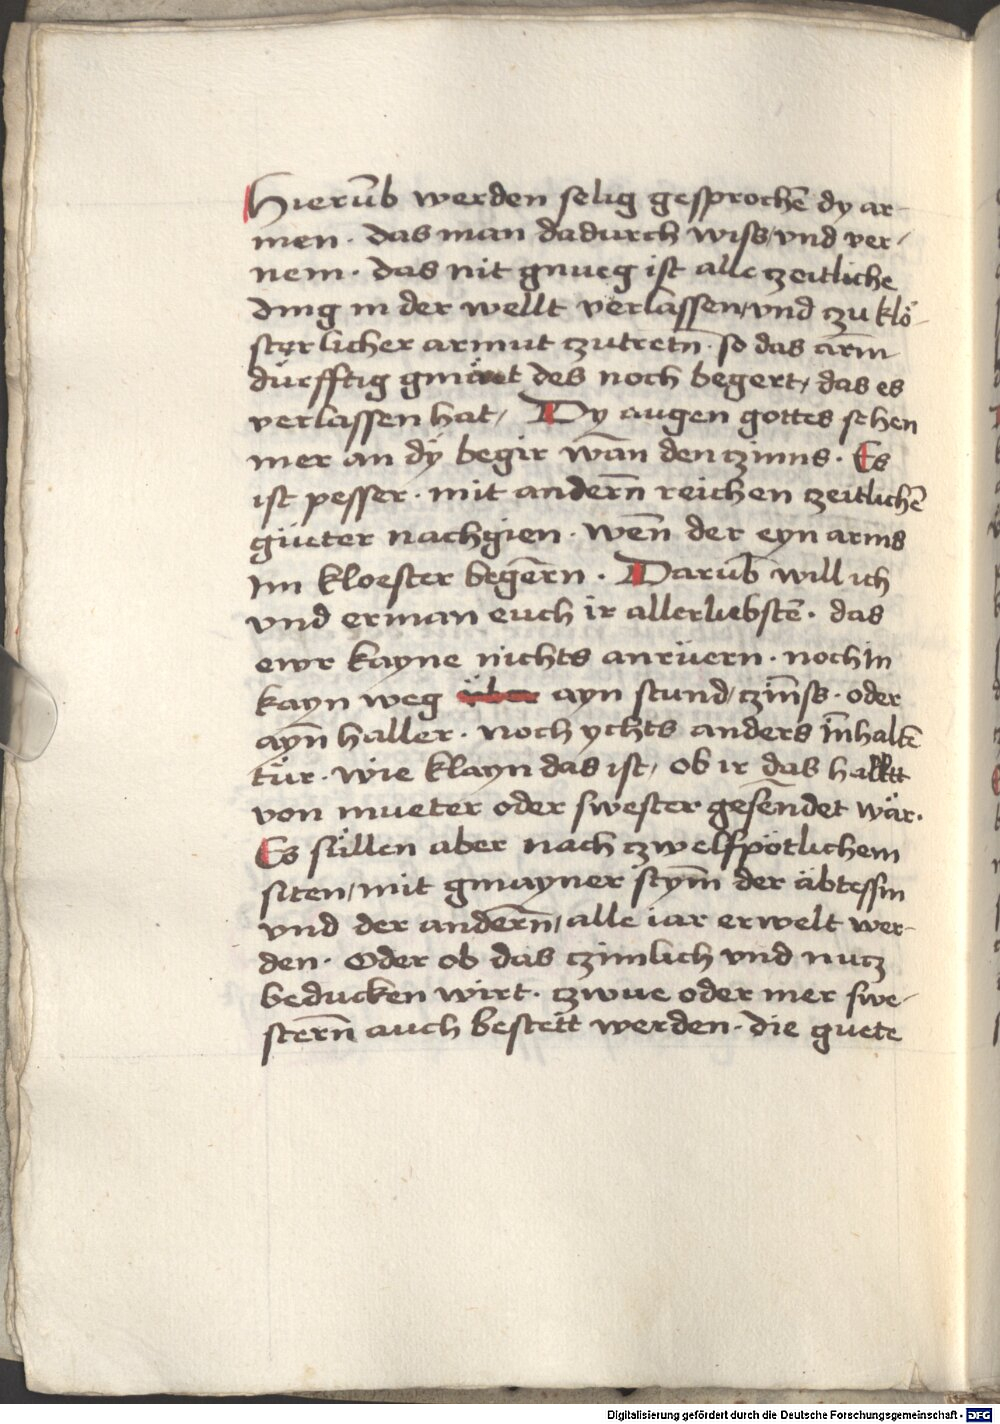 Hierūb werden selig gesprochē dy ar-
men · das man dadurch wiss / vnd ver-
nem · das nit gnueg ist alle czeitliche
ding in der wellt verlassen / vnd czu klö-
sterlicher armut czutretn̄ · so das arm̄
dürfftig gmüet des noch begert / das es
verlassen hat / Dy augen gottes sehen
mer an dÿ begir wān den czinns · Es
ist pesser · mit andern̄ reichen czeitlichē
güeter nachgien · wen̄ der eyn arms
im kloester begern̄ · Darūb will ich
vnd erman euch ir allerliebstē · das
ewr kayne nichts anrüern · noch in
kayn weg ayn stund / czin̄ss · oder
ayn̄ haller · noch ychts anders in̄haltē
tür · wie klayn das ist / ob ir das halltt
von mueter oder swester gesen̄det wär ·
Es süllen aber nach czwelfpötlichem
siten / mit gmayner stym̄ der äbtessin
vnd der andern̄ / alle iar erwelt wer-
den · Oder ob das czimlich vnd nucz
beducken wirt · czwue oder mer swe-
stern̄ auch bestett werden · die guete
Digitalisierung gefördert durch die Deutsche Forschungsgemeinschaft - DFG